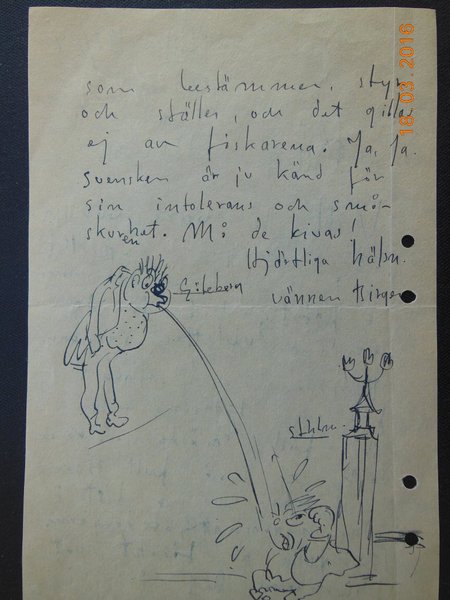 som bestämmer, styr
och ställer, och det gillas
ej av fiskarena. Ja, Ja.
svensken är ju känd för
sin intolerans och små-
skurenhet. Må de kivas!
Hjärtliga hälsn.
vännen Birger
Göteborg
sthlm.
18.03.2016